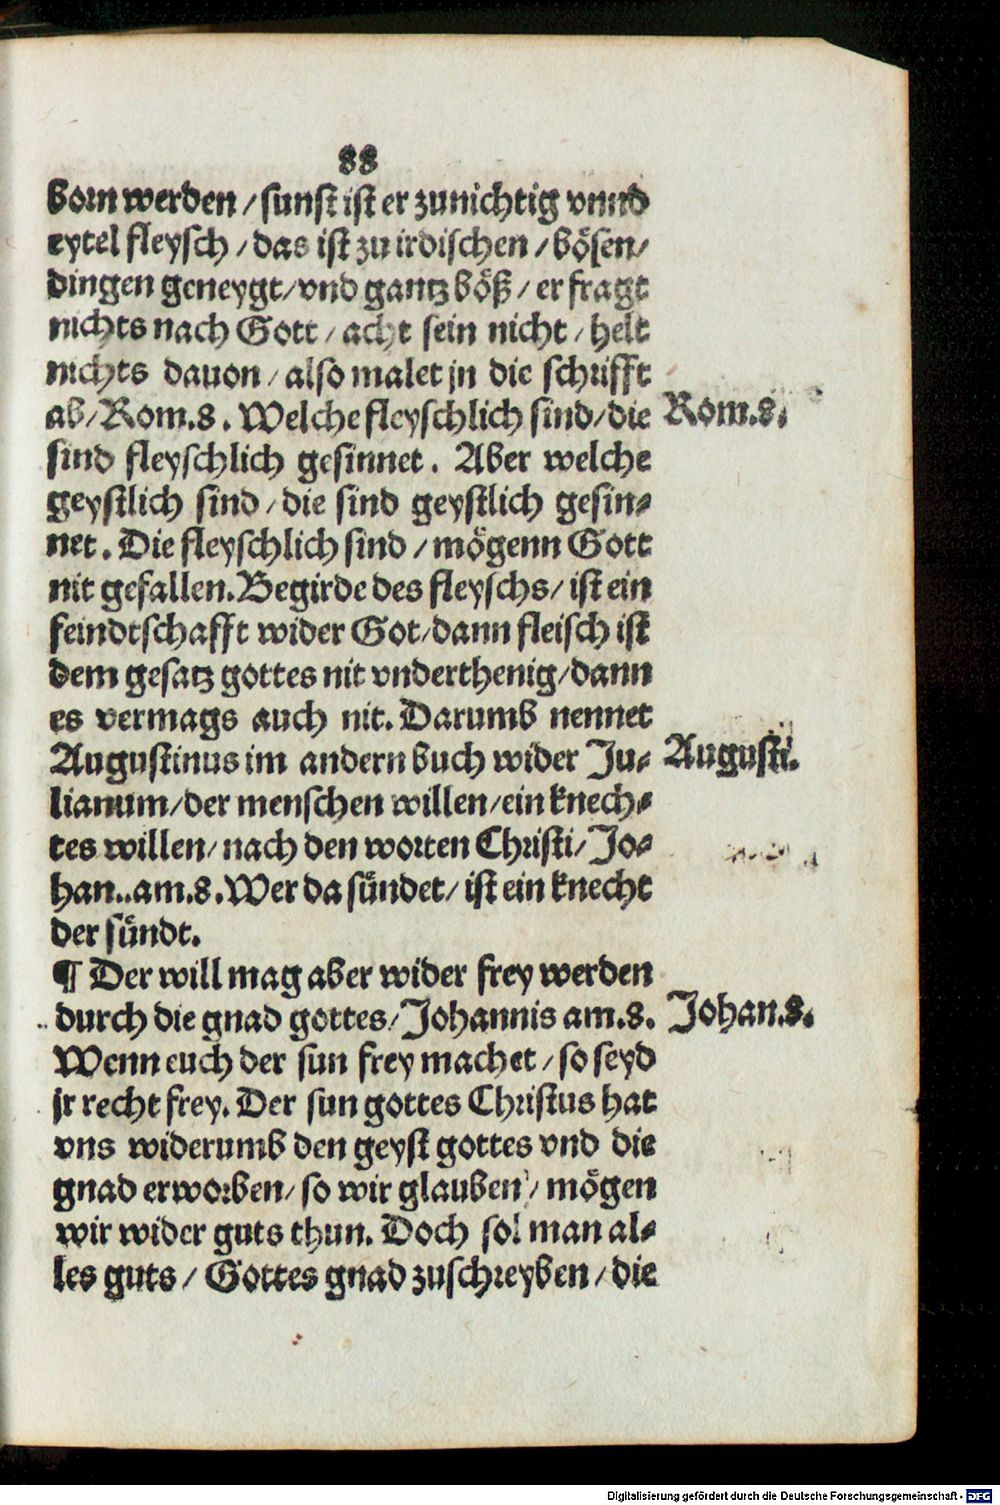 88
born werden / sunst ist er zunichtig vnnd
eytel fleysch / das ist zu irdischen / bösen /
dingen geneygt / vnd gantz böß / er fragt
nichts nach Gott / acht sein nicht / helt
nichts dauon / also malet jn die schrifft
ab / Rom.8. Welche fleyschlich sind / die Rom.8.
sind fleyschlich gesinnet. Aber welche
geystlich sind / die sind geystlich gesin⸗
net. Die fleyschlich sind / mögenn Gott
nit gefallen. Begirde des fleyschs / ist ein
feindtschafft wider Got / dann fleisch ist
dem gesatz gottes nit vnderthenig / dann
es vermags auch nit. Darumb nennet
Augustinus im andern buch wider Ju⸗ Augusti.
lianum / der menschen willen / ein knech⸗
tes willen / nach den worten Christi / Jo⸗
han..am.8. Wer da sündet / ist ein knecht
der sündt.
¶ Der will mag aber wider frey werden
durch die gnad gottes / Johannis am.8. Johan.8.
Wenn euch der sun frey machet / so seyd
jr recht frey. Der sun gottes Christus hat
vns widerumb den geyst gottes vnd die
gnad erworben / so wir glauben / mögen
wir wider guts thun. Doch sol man al⸗
les guts / Gottes gnad zuschreyben / die
Digitalisierung gefördert durch die Deutsche Forschungsgemeinschaft - DFG